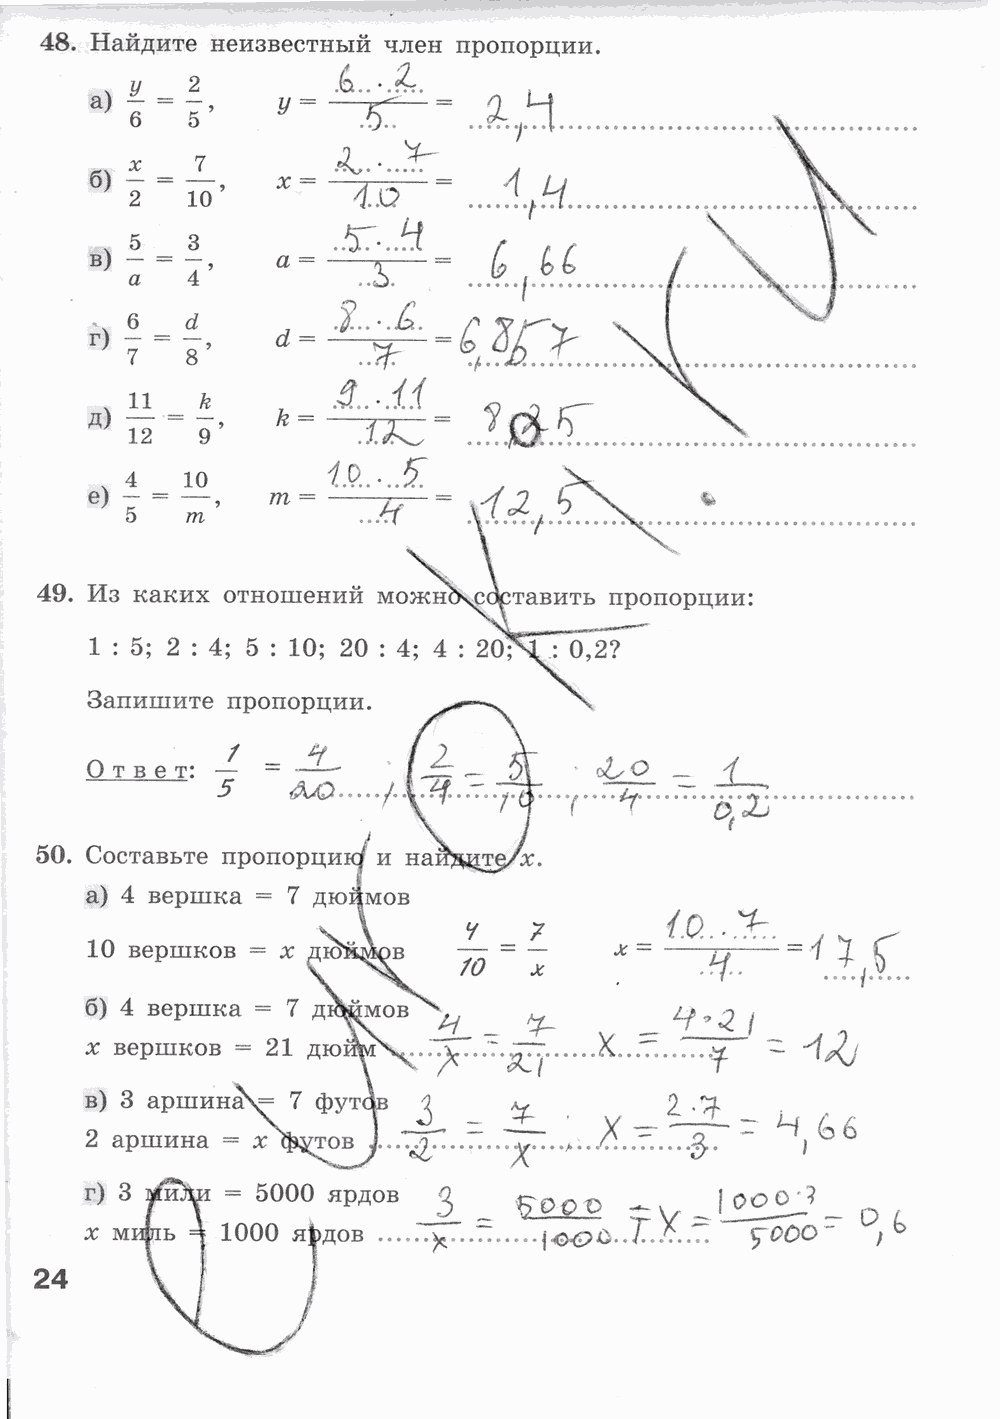 48. Найдите неизвестный член пропорции.
а) y/6 = 2/5, y = 6 · 2/5 = 2,4
б) x/2 = 7/10, x = 2 · 7/10 = 1,4
в) 5/a = 3/4, a = 5 · 4/3 = 6,66
г) 6/7 = d/8, d = 8 · 6/7 = 6,857
д) 11/12 = k/9, k = 9 · 11/12 = 8,25
е) 4/5 = 10/m, m = 10 · 5/4 = 12,5
49. Из каких отношений можно составить пропорции:
1 : 5; 2 : 4; 5 : 10; 20 : 4; 4 : 20; 1 : 0,2?
Запишите пропорции.
Ответ: 1/5 = 4/20 ; 2/4 = 5/10 ; 20/4 = 1/0,2
50. Составьте пропорцию и найдите x.
а) 4 вершка = 7 дюймов
10 вершков = x дюймов 4/10 = 7/x x = 10 · 7/4 = 17,5
б) 4 вершка = 7 дюймов
x вершков = 21 дюйм 4/x = 7/21 x = 4·21/7 = 12
в) 3 аршина = 7 футов
2 аршина = x футов 3/2 = 7/x ; x = 2·7/3 = 4,66
г) 3 мили = 5000 ярдов
x миль = 1000 ярдов 3/x = 5000/1000 x = 1000·3/5000 = 0,6
24